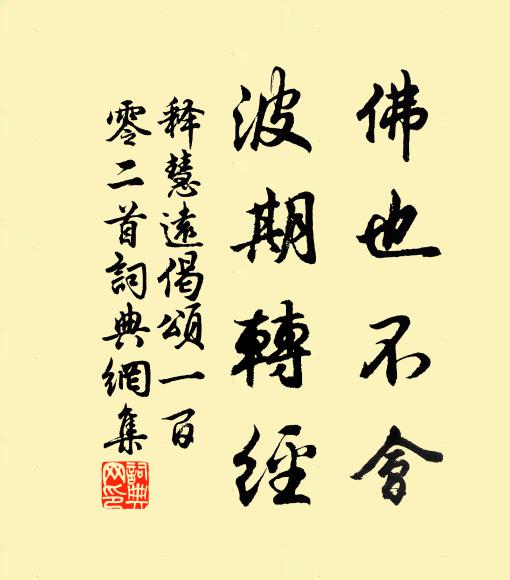 佛也不會
波期轉經
释慧遠偈頌一百
零二首詞典網集
詞典網印